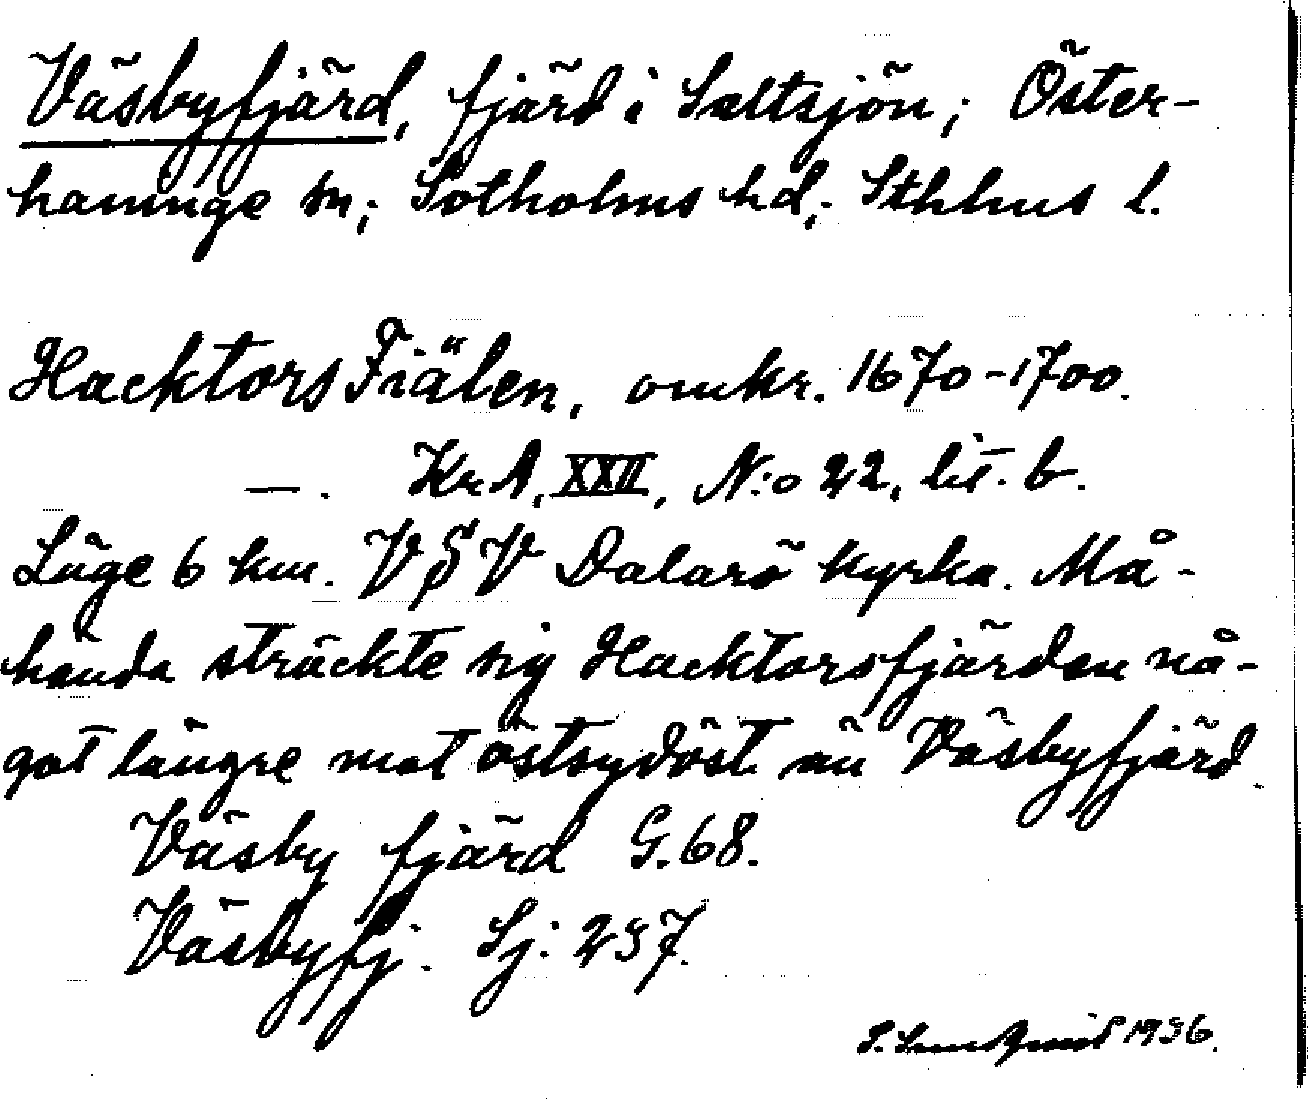 Väsbyfjärd, fjärd i Saltsjön; Öster-
haninge sn; Sotholms hd; Sthlms l.
Hacktors Fiälen, omkr. 1670-1700.
—. Kr A, XXII, N:o 22, lit. b.
Läge 6 km. VSV Dalarö kyrka. Må-
hända sträckte sig Hacktorsfjärden nå-
got längre mot ostsydost än Väsbyfjärd.
Väsby fjärd G. 68.
Väsbyfj. Sj: 237.
1936.